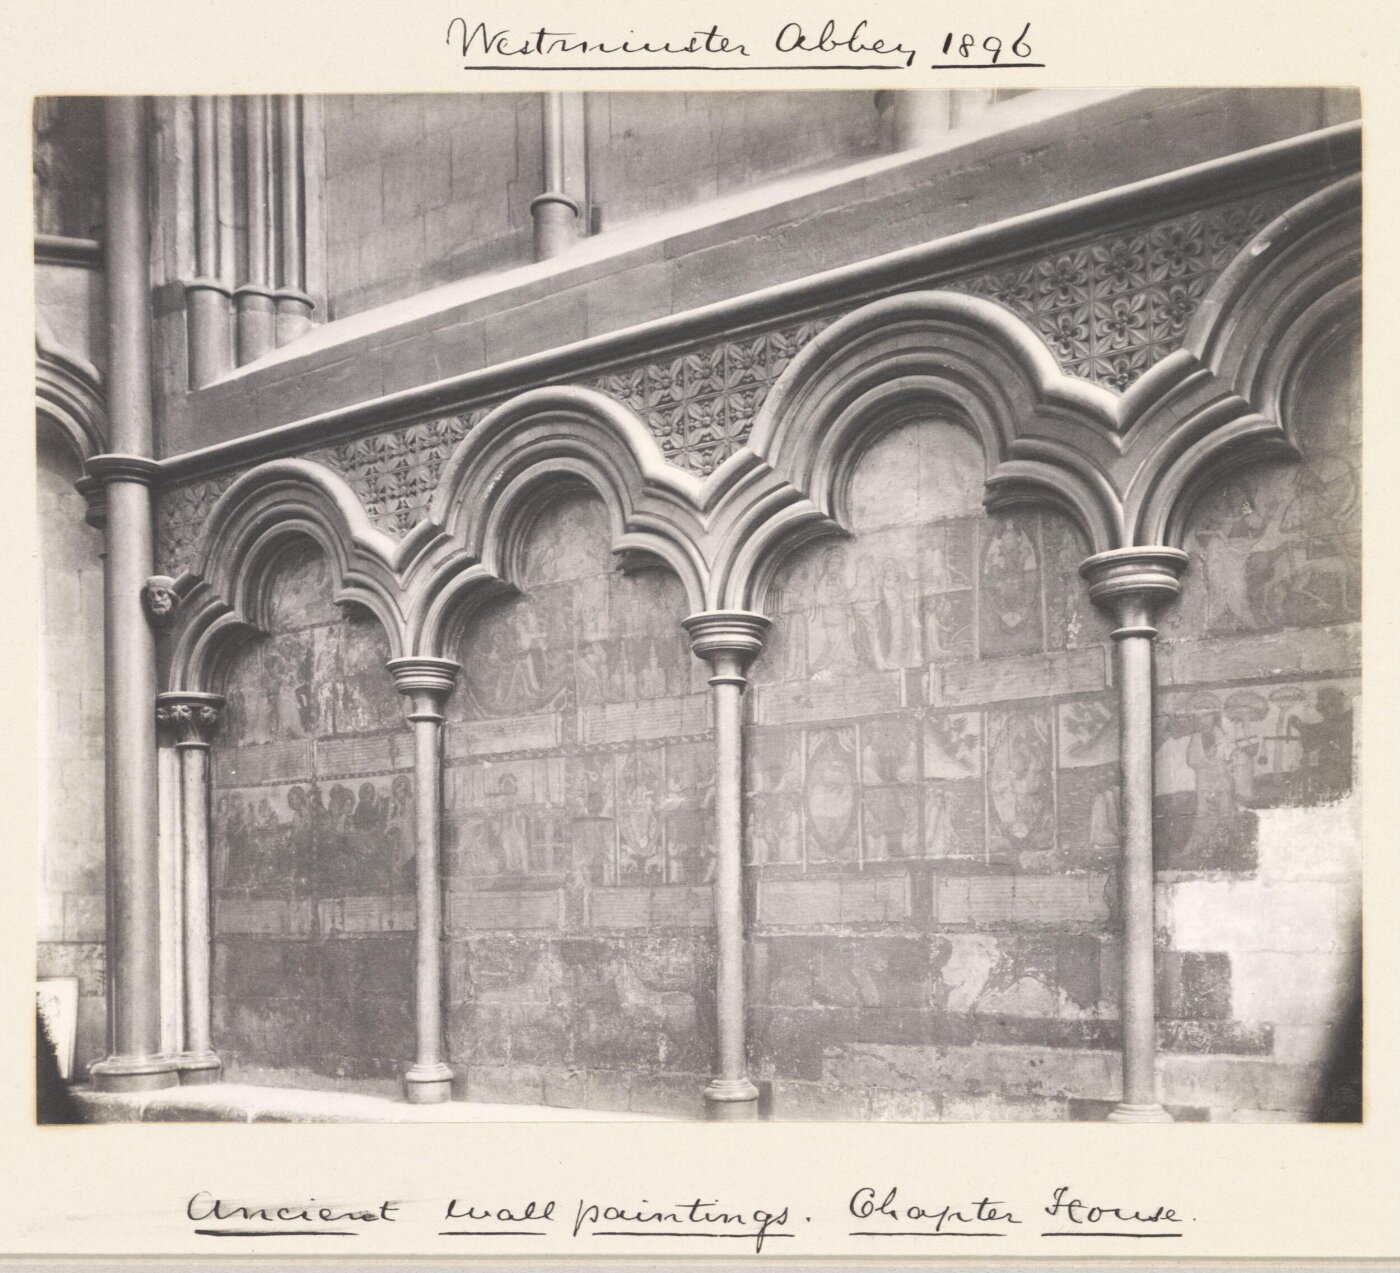 Westminster Abbey 1896
Ancient wall paintings. Chapter House.